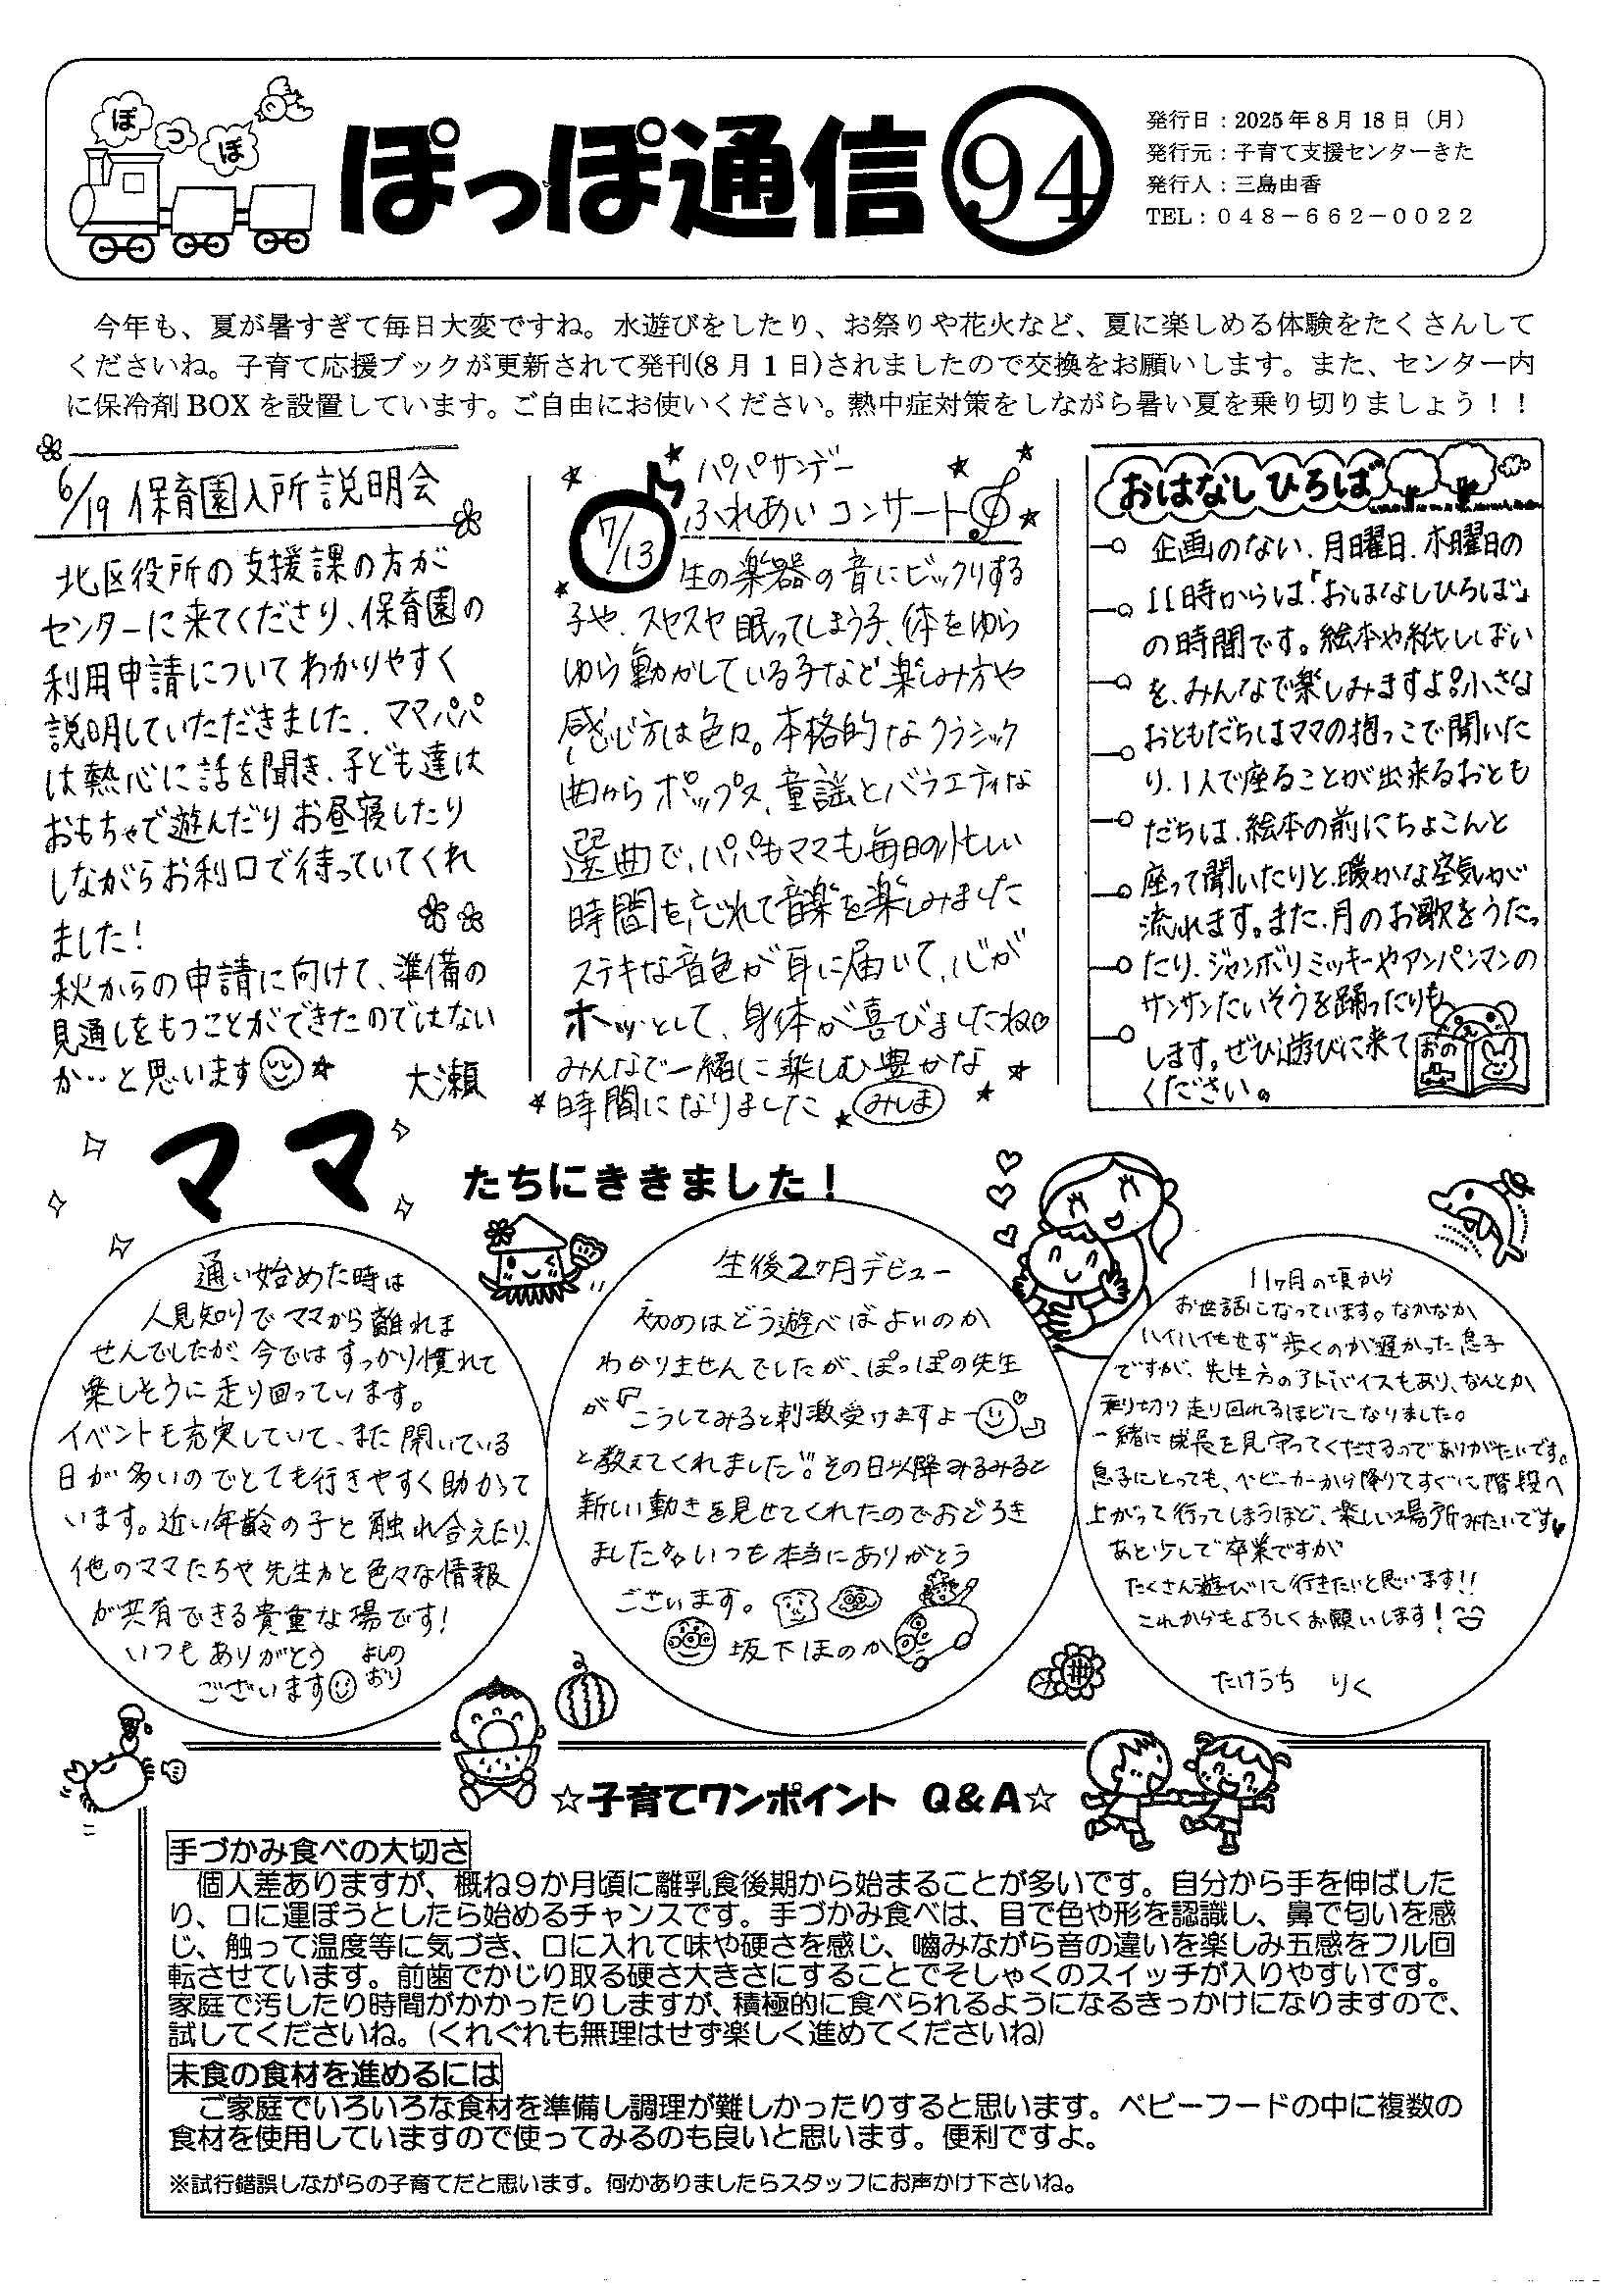 ぽ
っ
ぽ
ぽっぽ通信 94
発行日：2025年8月18日（月）
発行元：子育て支援センターきた
発行人：三島由香
TEL：０４８－６６２－００２２
今年も、夏が暑すぎて毎日大変ですね。水遊びをしたり、お祭りや花火など、夏に楽しめる体験をたくさんして
くださいね。子育て応援ブックが更新されて発刊(8月1日)されましたので交換をお願いします。また、センター内
に保冷剤BOXを設置しています。ご自由にお使いください。熱中症対策をしながら暑い夏を乗り切りましょう！！
6/19 保育園入所説明会
北区役所の支援課の方が
センターに来てくださり、保育園の
利用申請についてわかりやすく
説明していただきました。ママパパ
は熱心に話を聞き、子ども達は
おもちゃで遊んだりお昼寝したり
しながらお利口で待っていてくれ
ました！
秋からの申請に向けて、準備の
見通しをもつことができたのではない
か…と思います
大瀬
7/13
パパサンデー
ふれあいコンサート
生の楽器の音にビックリする
子や、スヤスヤ眠ってしまう子、体をゆら
ゆら動かしている子など楽しみ方や
感じ方は色々。本格的なクラシック
曲からポップス、童謡とバラエティな
選曲で、パパもママも毎日の忙しい
時間を忘れて音楽を楽しみました
ステキな音色が耳に届いて、心が
ホッとして、身体が喜びましたね♡
みんなで一緒に楽しむ豊かな
時間になりました
みしま
おはなしひろば
企画のない、月曜日、木曜日の
11時からは「おはなしひろば」
の時間です。絵本や紙しばい
を、みんなで楽しみますよ!小さな
おともだちはママの抱っこで聞いた
り、1人で座ることが出来るおとも
だちは、絵本の前にちょこんと
座って聞いたりと、暖かな空気が
流れます。また、月のお歌をうたっ
たり、ジャンボリミッキーやアンパンマンの
サンサンたいそうを踊ったりも
します。ぜひ遊びに来て
ください。
ママ たちにききました！
通い始めた時は
人見知りでママから離れま
せんでしたが、今ではすっかり慣れて
楽しそうに走り回っています。
イベントも充実していて、また開いている
日が多いのでとても行きやすく助かって
います。近い年齢の子と触れ合えたり、
他のママたちや先生方と色々な情報
が共有できる貴重な場です！
いつもありがとう
ございます
よしの
おり
生後2ヶ月デビュー
初めはどう遊べばよいのか
わかりませんでしたが、ぽっぽの先生
が「こうしてみると刺激受けますよー」
と教えてくれました!!その日以降みるみると
新しい動きを見せてくれたのでおどろき
ました!!いつも本当にありがとう
ございます。
坂下ほのか
11ヶ月の頃から
お世話になっています。なかなか
ハイハイもせず歩くのが遅かった息子
ですが、先生方のアドバイスもあり、なんとか
乗り切り走り回れるほどになりました。
一緒に成長を見守ってくださるのでありがたいです。
息子にとっても、ベビーカーから降りてすぐに階段へ
上がって行ってしまうほど、楽しい場所みたいです♥
あと少しで卒業ですが
たくさん遊びに行きたいと思います!!
これからもよろしくお願いします！
たけうち りく
☆子育てワンポイント Q&A☆
手づかみ食べの大切さ
個人差ありますが、概ね９か月頃に離乳食後期から始まることが多いです。自分から手を伸ばした
り、口に運ぼうとしたら始めるチャンスです。手づかみ食べは、目で色や形を認識し、鼻で匂いを感
じ、触って温度等に気づき、口に入れて味や硬さを感じ、噛みながら音の違いを楽しみ五感をフル回
転させています。前歯でかじり取る硬さ大きさにすることでそしゃくのスイッチが入りやすいです。
家庭で汚したり時間がかかったりしますが、積極的に食べられるようになるきっかけになりますので、
試してくださいね。（くれぐれも無理はせず楽しく進めてくださいね）
未食の食材を進めるには
ご家庭でいろいろな食材を準備し調理が難しかったりすると思います。ベビーフードの中に複数の
食材を使用していますので使ってみるのも良いと思います。便利ですよ。
※試行錯誤しながらの子育てだと思います。何かありましたらスタッフにお声かけ下さいね。